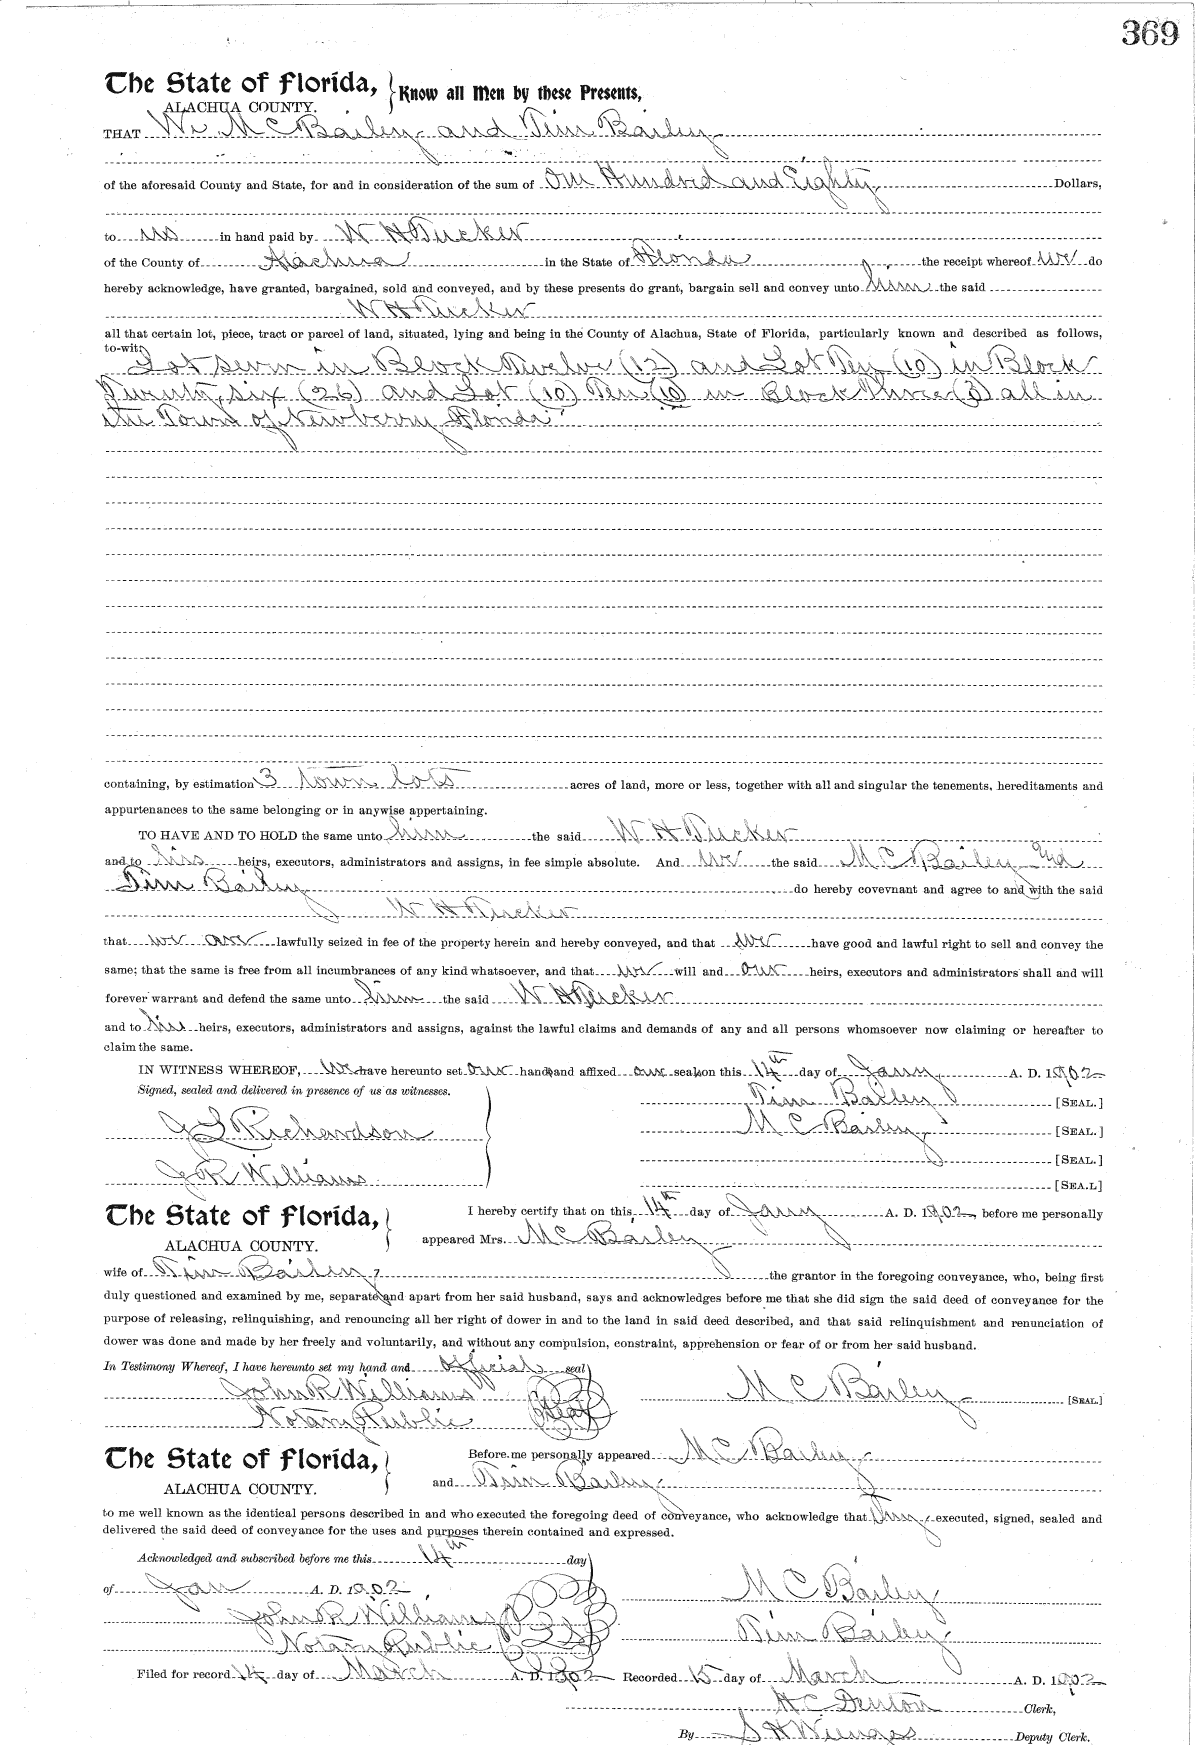 369
The State of Florida,
ALACHUA COUNTY.
Know all Men by these Presents,
THAT We M C Bailey and Tim Bailey
of the aforesaid County and State, for and in consideration of the sum of One Hundred and Eighty Dollars,
to us in hand paid by W H Tucker
of the County of Alachua in the State of Florida the receipt whereof we do
hereby acknowledge, have granted, bargained, sold and conveyed, and by these presents do grant, bargain sell and convey unto him the said
W H Tucker
all that certain lot, piece, tract or parcel of land, situated, lying and being in the County of Alachua, State of Florida, particularly known and described as follows,
to-wit:
Lot Seven in Block Twelve (12) and Lot Ten (10) in Block
Twenty six (26) and Lot (10) Ten (10) in Block Three (3) all in
the Town of Newberry Florida
containing, by estimation 3 town lots acres of land, more or less, together with all and singular the tenements, hereditaments and
appurtenances to the same belonging or in anywise appertaining.
TO HAVE AND TO HOLD the same unto him the said W H Tucker
and to his heirs, executors, administrators and assigns, in fee simple absolute. And we the said M C Bailey and
Tim Bailey do hereby covevnant and agree to and with the said
W H Tucker
that we are lawfully seized in fee of the property herein and hereby conveyed, and that we have good and lawful right to sell and convey the
same; that the same is free from all incumbrances of any kind whatsoever, and that we will and our heirs, executors and administrators shall and will
forever warrant and defend the same unto him the said W H Tucker
and to his heirs, executors, administrators and assigns, against the lawful claims and demands of any and all persons whomsoever now claiming or hereafter to
claim the same.
IN WITNESS WHEREOF, we have hereunto set our hand and affixed our seal on this 14th day of Jany A. D. 1902
Signed, sealed and delivered in presence of us as witnesses.
Tim Bailey [SEAL.]
J S Richardson
M C Bailey [SEAL.]
[SEAL.]
J R Williams
[SEA.L]
The State of Florida,
ALACHUA COUNTY.
I hereby certify that on this 14th day of Jany A. D. 1902, before me personally
appeared Mrs. M C Bailey
wife of Tim Bailey the grantor in the foregoing conveyance, who, being first
duly questioned and examined by me, separate and apart from her said husband, says and acknowledges before me that she did sign the said deed of conveyance for the
purpose of releasing, relinquishing, and renouncing all her right of dower in and to the land in said deed described, and that said relinquishment and renunciation of
dower was done and made by her freely and voluntarily, and without any compulsion, constraint, apprehension or fear of or from her said husband.
In Testimony Whereof, I have hereunto set my hand and official seal
John R Williams
Notary Public
Seal
M C Bailey [SEAL.]
The State of Florida,
ALACHUA COUNTY.
Before me personally appeared M C Bailey
and Tim Bailey
to me well known as the identical persons described in and who executed the foregoing deed of conveyance, who acknowledge that they executed, signed, sealed and
delivered the said deed of conveyance for the uses and purposes therein contained and expressed.
Acknowledged and subscribed before me this 14th day
of Jan A. D. 1902
M C Bailey
John R Williams
Tim Bailey
Notary Public
Filed for record 14 day of March A. D. 1902 Recorded 15 day of March A. D. 1902
H C Denton Clerk,
By S H Wienges Deputy Clerk.